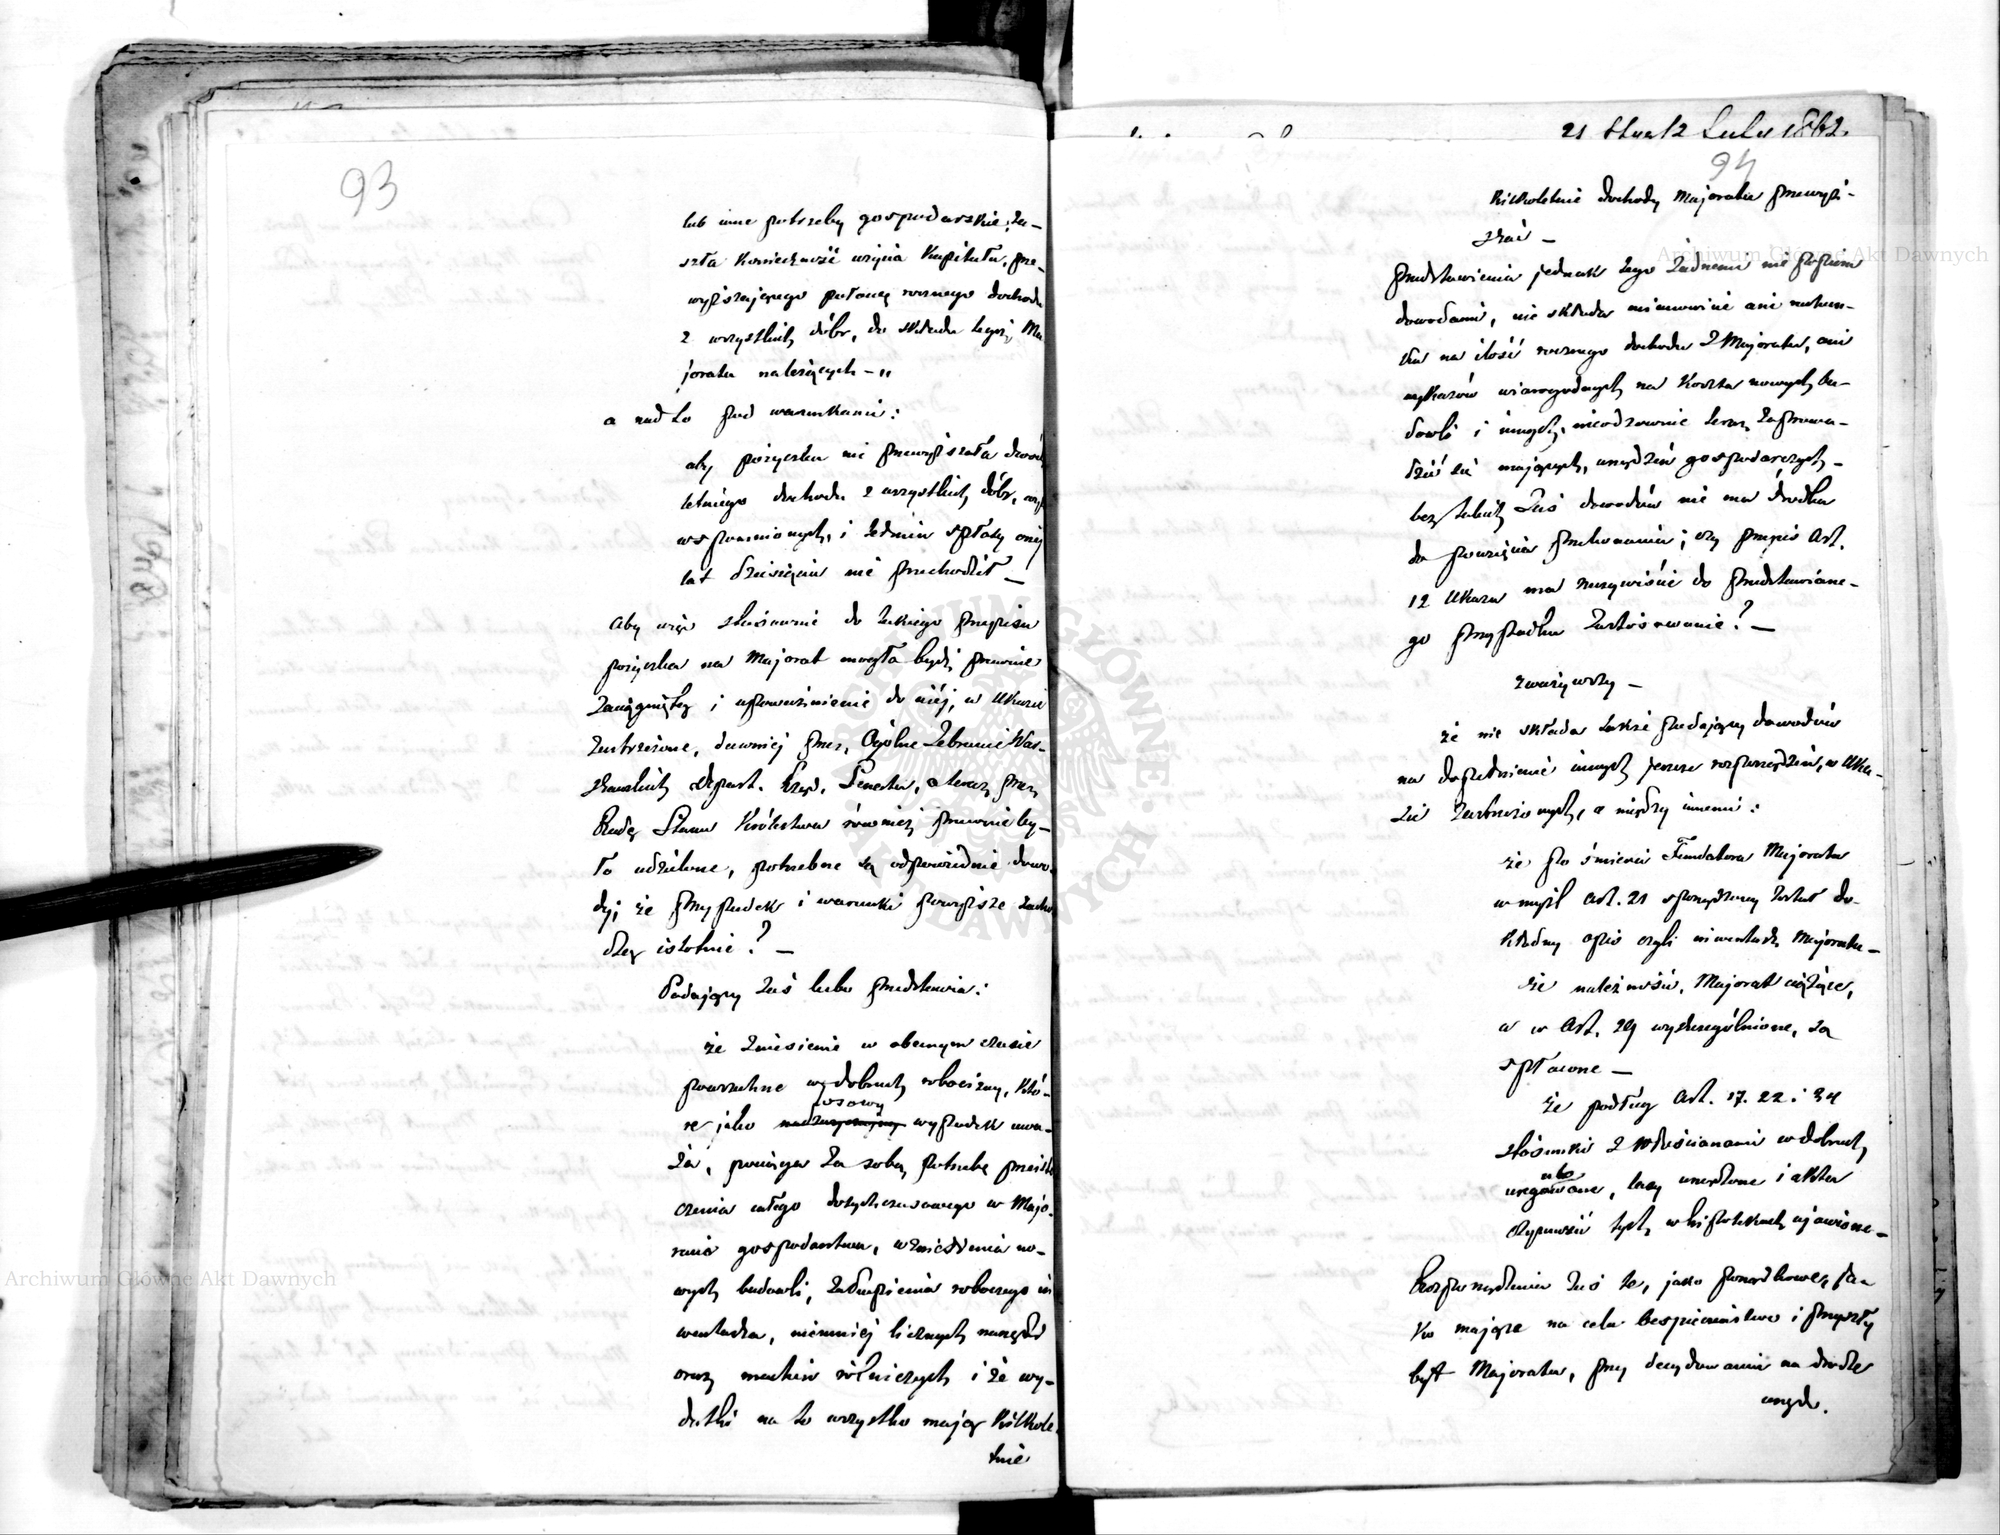 93
lub inne potrzeby gospodarskie, za-
szła konieczność użycia Kapitału, prze-
wyższającego połowę rocznego dochodu
z wszystkich dóbr, do składu tegoż Ma
joratu należących -"
a nad to pod warunkami:
aby pożyczka nie przewyższała dwu
letniego dochodu z wszystkich dóbr, wyż
wspomnionych, i termin spłaty onej
lat dziesięciu nie przechodził _
Aby więc stósownie do takiego przepisu
pożyczka na Majorat mogła bydź prawnie
zaciągniętą i upoważnienie do niej, w Ukazie
zastrzeżone, dawniej przez Ogólne Zebranie War-
szawskich Depart. Rząd. Senatu, a teraz przez
Radę Stanu Królestwa również prawnie by-
ło udzielone, potrzebne są odpowiednie dowo-
dy; że przypadek i warunki powyższe zacho
dzą istotnie? _
Podający zaś lubo przedstawia:
że zniesienie w obecnym czasie
powszechne w dobrach robocizny, któ-
re jako losowy wypadek uwa-
ża, pociąga za sobą potrzebę przeista
czenia całego dotychczasowego w Majo-
racie gospodarstwa, wzniesienia no-
wych budowli, zakupienia roboczego in
wentarza, niemniej licznych narzędzi
oraz machin rólniczych i że wy-
datki na to wszystko mają Kilkole
tnie
21 Stycz/2 Luty 1862.
94
Kilkoletnie dochody Majoratu przewyż-
szać _
Przedstawienia jednak tego żadnemi nie popiera
dowodami, nie składa mianowicie ani
na ilość rocznego dochodu z Majoratu, ani
wykazów wiarogodnych na koszta nowych bu-
dowli i innych, nieodzownie teraz zaprowa-
dzić się mających, urządzeń gospodarczych _
bez takich zaś dowodów nie ma środka
do powzięcia przekonania; czy przepis Art.
12 Ukazu ma rzeczywiście do przedstawione-
go przypadku zastósowanie? _
zważywszy _
że nie składa także podający dowodów
na dopełnienie innych jeszcze rozporządzeń, w Uka-
zie zastrzeżonych, a między innemi:
że po śmierci Fundatora Majoratu
w myśl Art. 21 sporządzony został do-
kładny opis czyli inwentarz Majoratu _
że należności, Majorat ciążące,
a w Art. 29 wyszczególnione, są
spłacone _
że podług Art. 17. 22. i 34
stósunki z Włościanami w dobrach
uregulowane, lasy urządzone i akta
czynności tych w hipotekach ujawione _
Rozporządzenia zaś te, jako porządkowe, ja-
ko mające na celu bezpieczeństwo i przyszły
byt Majoratu, przy decydowaniu na drodze
urzęd.
Archiwum Główne Akt Dawnych
Archiwum Główne Akt Dawnych
ARCHIWUM GŁÓWNE AKT DAWNYCH